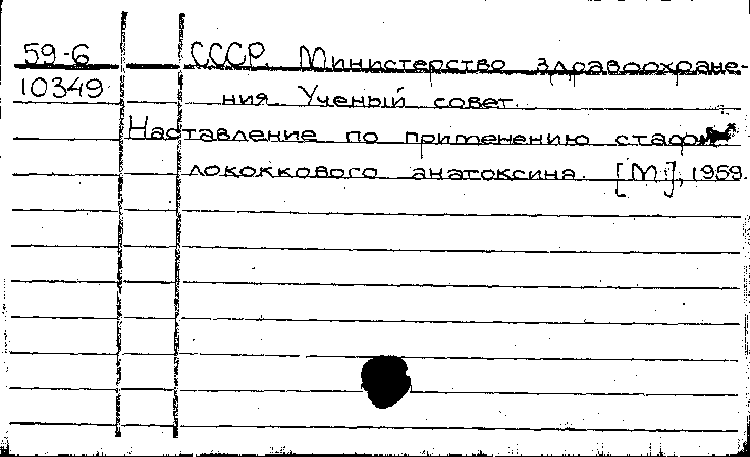 59-6 СССР. Министерство здравоохране-
10349 ния Ученый совет.
Наставление по применению стафи
лококкового анатоксина. [М.], 1959.